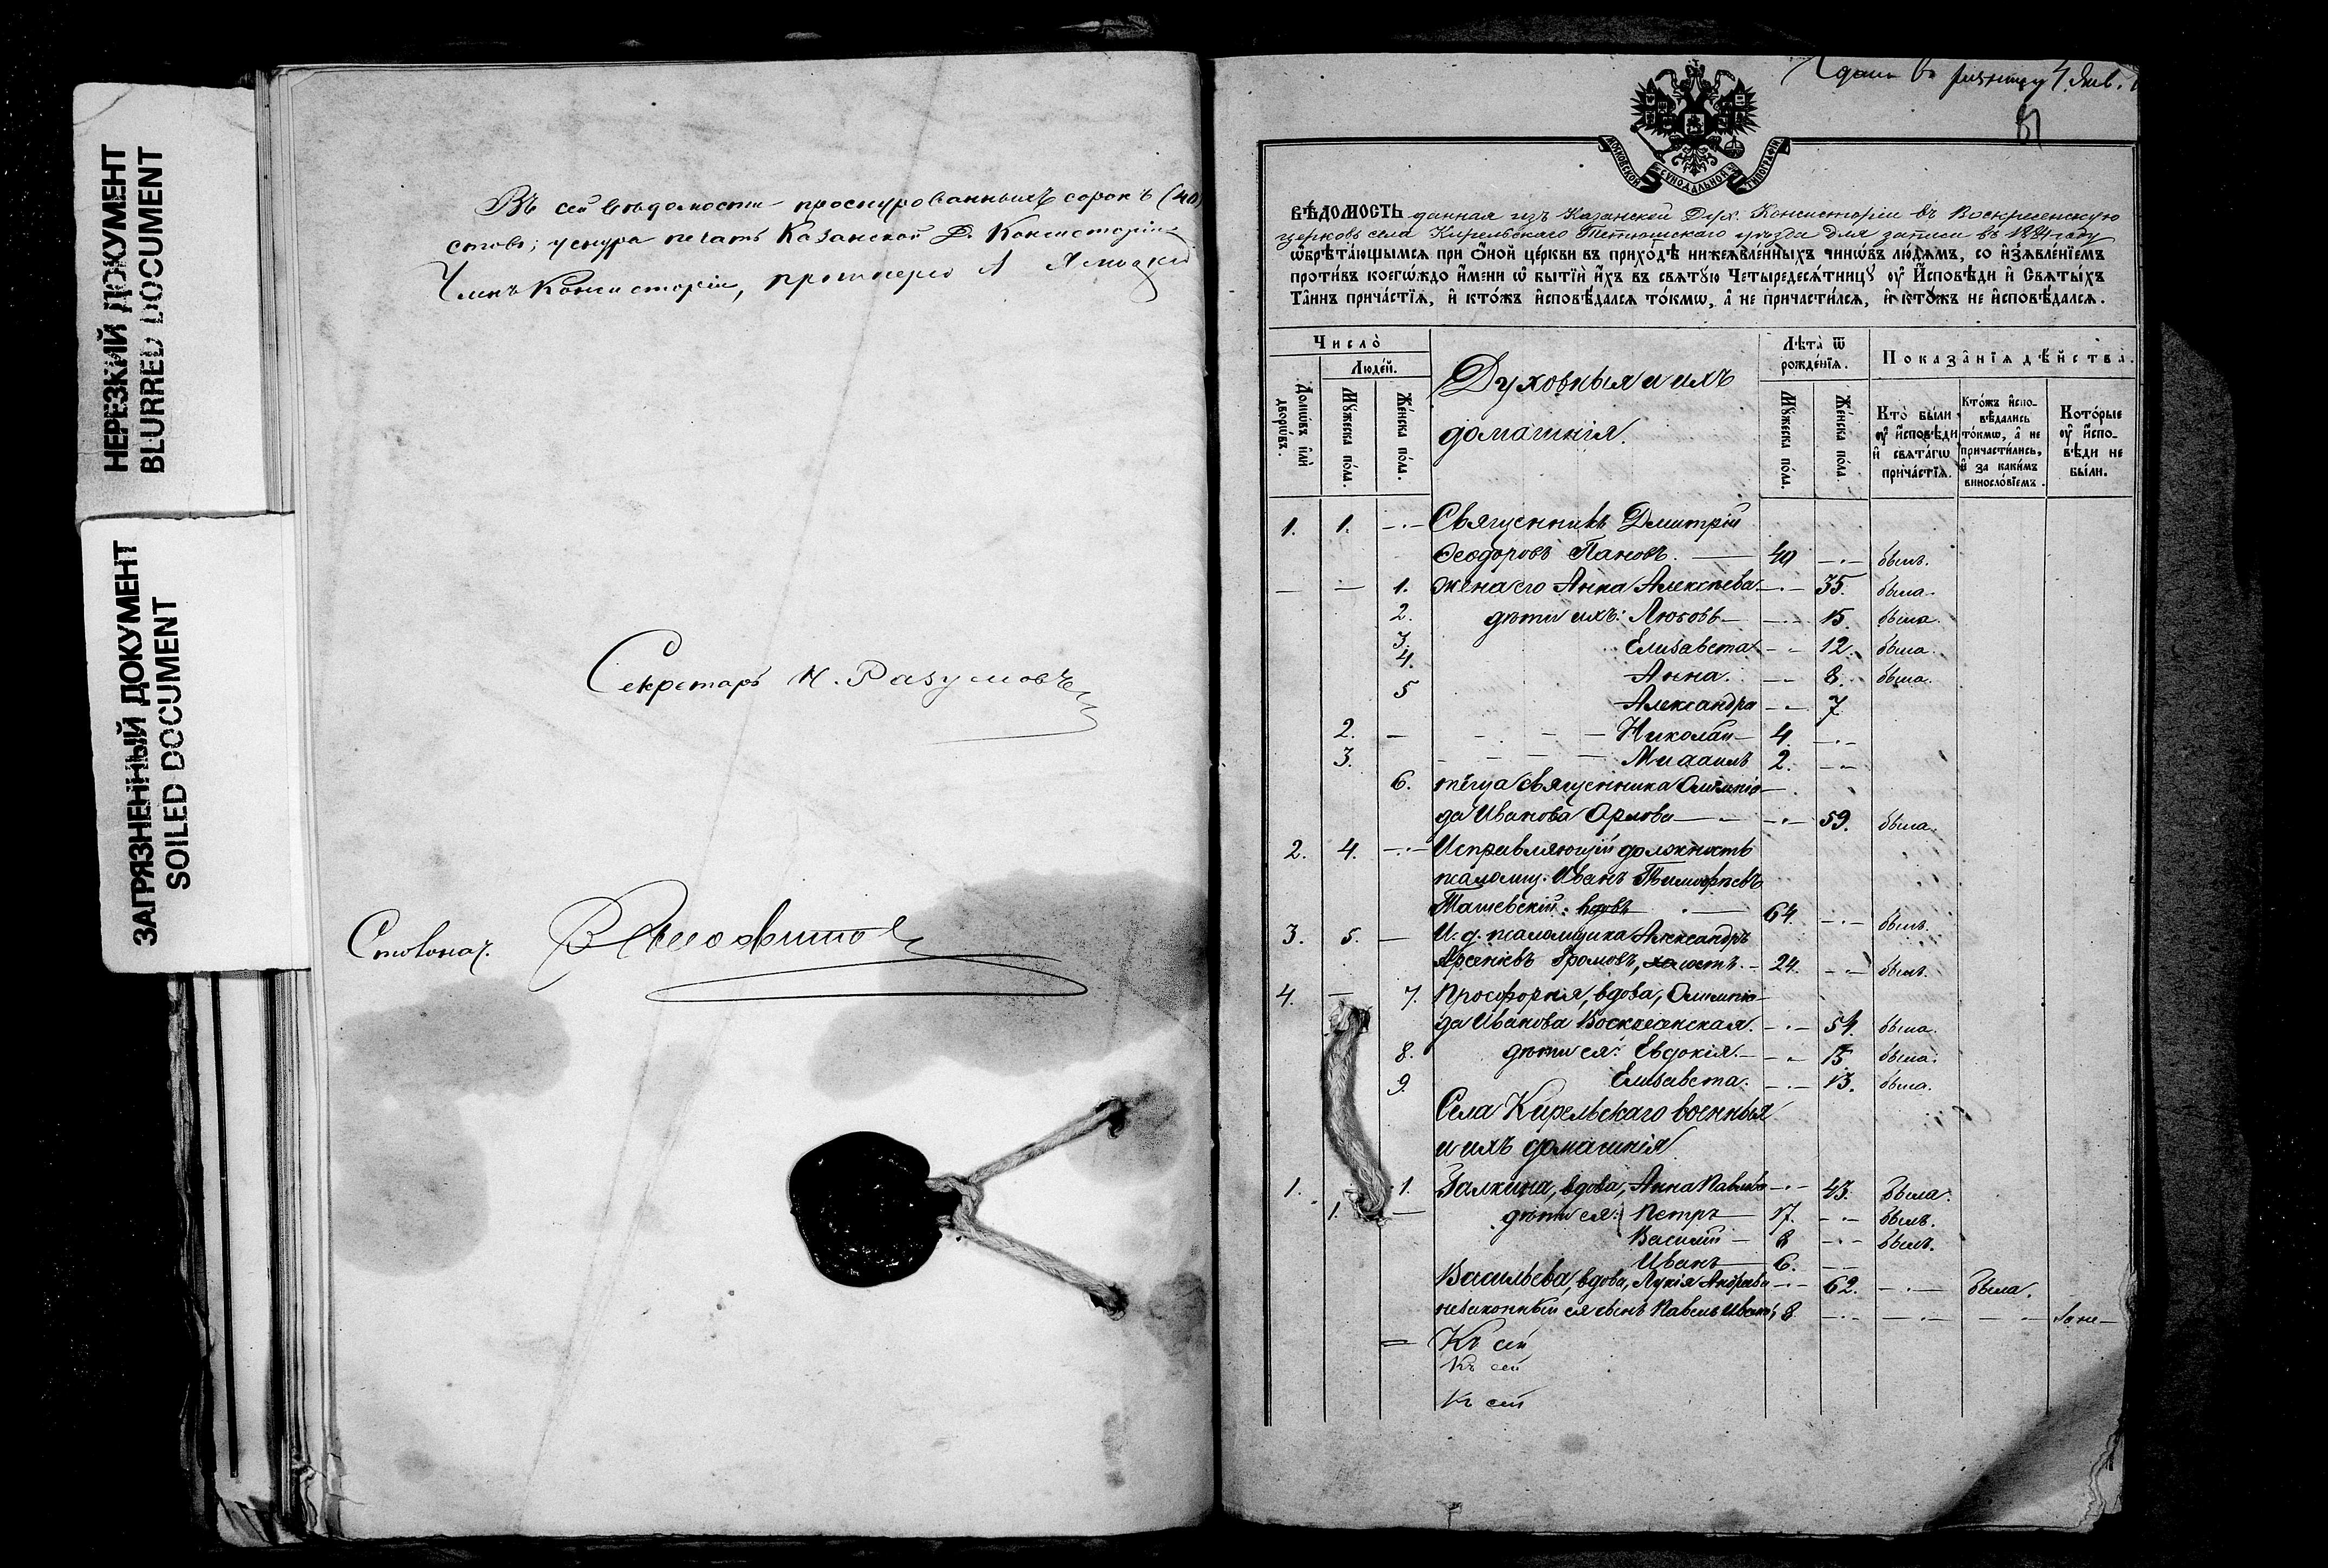 НЕРЕЗКИЙ ДОКУМЕНТ
BLURRED DOCUMENT
ЗАГРЯЗНЕННЫЙ ДОКУМЕНТ
SOILED DOCUMENT
Въ сей вѣдомости прошнурованныхъ сорокъ (40)
листовъ; у шнура печать Казанской Д. Консисторіи
Членъ Консисторіи, протоіерей А
Секретарь Н. Разумовъ
Столонач.
4 Янв.
81
МОСКОВСКОЙ СѴНОДАЛЬНОЙ ТИПОГРАФІИ
ВѢДОМОСТЬ данная изъ Казанской Дух. Консисторіи въ Воскресенскую
церковь села Кирельскаго Тетюшскаго уѣзда для записи въ 1884 году
ѡ҆брѣта́ющымсѧ при ѻ҆́ной це́ркви въ прихо́дѣ нижеѧвле́нныхъ чинѡ́въ лю́дѧмъ, со и҆з̾ѧвле́нїемъ
проти́въ коегѡ́ждо и҆́мени ѡ҆ бытїи̑ и҆́хъ въ свѧтꙋ́ю Четыредесѧ́тницꙋ ᲂу҆ И҆́сповѣди и҆ Свѧты́хъ
Та̑инъ прича́стїѧ, и҆ кто́жъ и҆сповѣ́далсѧ то́кмѡ, а҆ не причасти́лсѧ, и҆ кто́жъ не и҆сповѣ́далсѧ.
Число̀
Люде́й.
Домѡ́въ и҆лѝ дворѡ́въ.
Мꙋ́жеска по́ла.
Же́нска по́ла.
Духовныя и ихъ
домашнія.
Лѣ́та ѿ рожде́нїѧ.
Мꙋ́жеска по́ла.
Же́нска по́ла.
Показа̑нїѧ дѣ́йства.
Кто̀ бы́ли ᲂу҆ и҆́сповѣди и҆ свѧта́гѡ прича́стїѧ.
Кто́жъ и҆сповѣ́дались то́кмѡ, а҆ не причасти́лись, и҆ за каки́мъ виносло́вїемъ.
Кото́рые ᲂу҆ и҆́сповѣди не бы́ли.
1. 1. — Священникъ Дмитрій
Ѳеодоровъ Пановъ. — 40 — былъ.
— — 1. жена его Анна Алексѣева — 35. была.
2. дѣти ихъ: Любовь — 15. была.
3. Елизавета — 12. была.
4. Анна. — 8. была.
5 Александра — 7
2. — Николай — 4. —
3. — Михаилъ 2. —
6. тёща священника Олимпіо-
да Иванова Орлова — 59. была.
2. 4. — Исправляющій должность
псаломщ. Иванъ Тимоѳѣевъ
Ташевскій: вдовъ — 64. — былъ.
3. 5. — И. д. псаломщика Александръ
Арсеніевъ Громовъ, холостъ. — 24. — былъ.
4. — 7. Просфорня, вдова, Олимпіо-
да Иванова Воскресенская. — 54. была.
8. дѣти ея: Евдокія. — 15 была.
9. Елизавета. — 13. была.
Села Кирельскаго военныя
и ихъ домашнія.
1. 1. Галкина, вдова, Анна Павлова — 43. Была.
1. — дѣти ея: Петръ 17. — былъ.
Василій — 8 — былъ.
Иванъ — 6. —
Васильева, вдова, Лукія Андреева — 62. — была.
незаконный ея сынъ Павелъ Ивановъ 8 — — —
= Къ сей
Къ сей
Къ сей